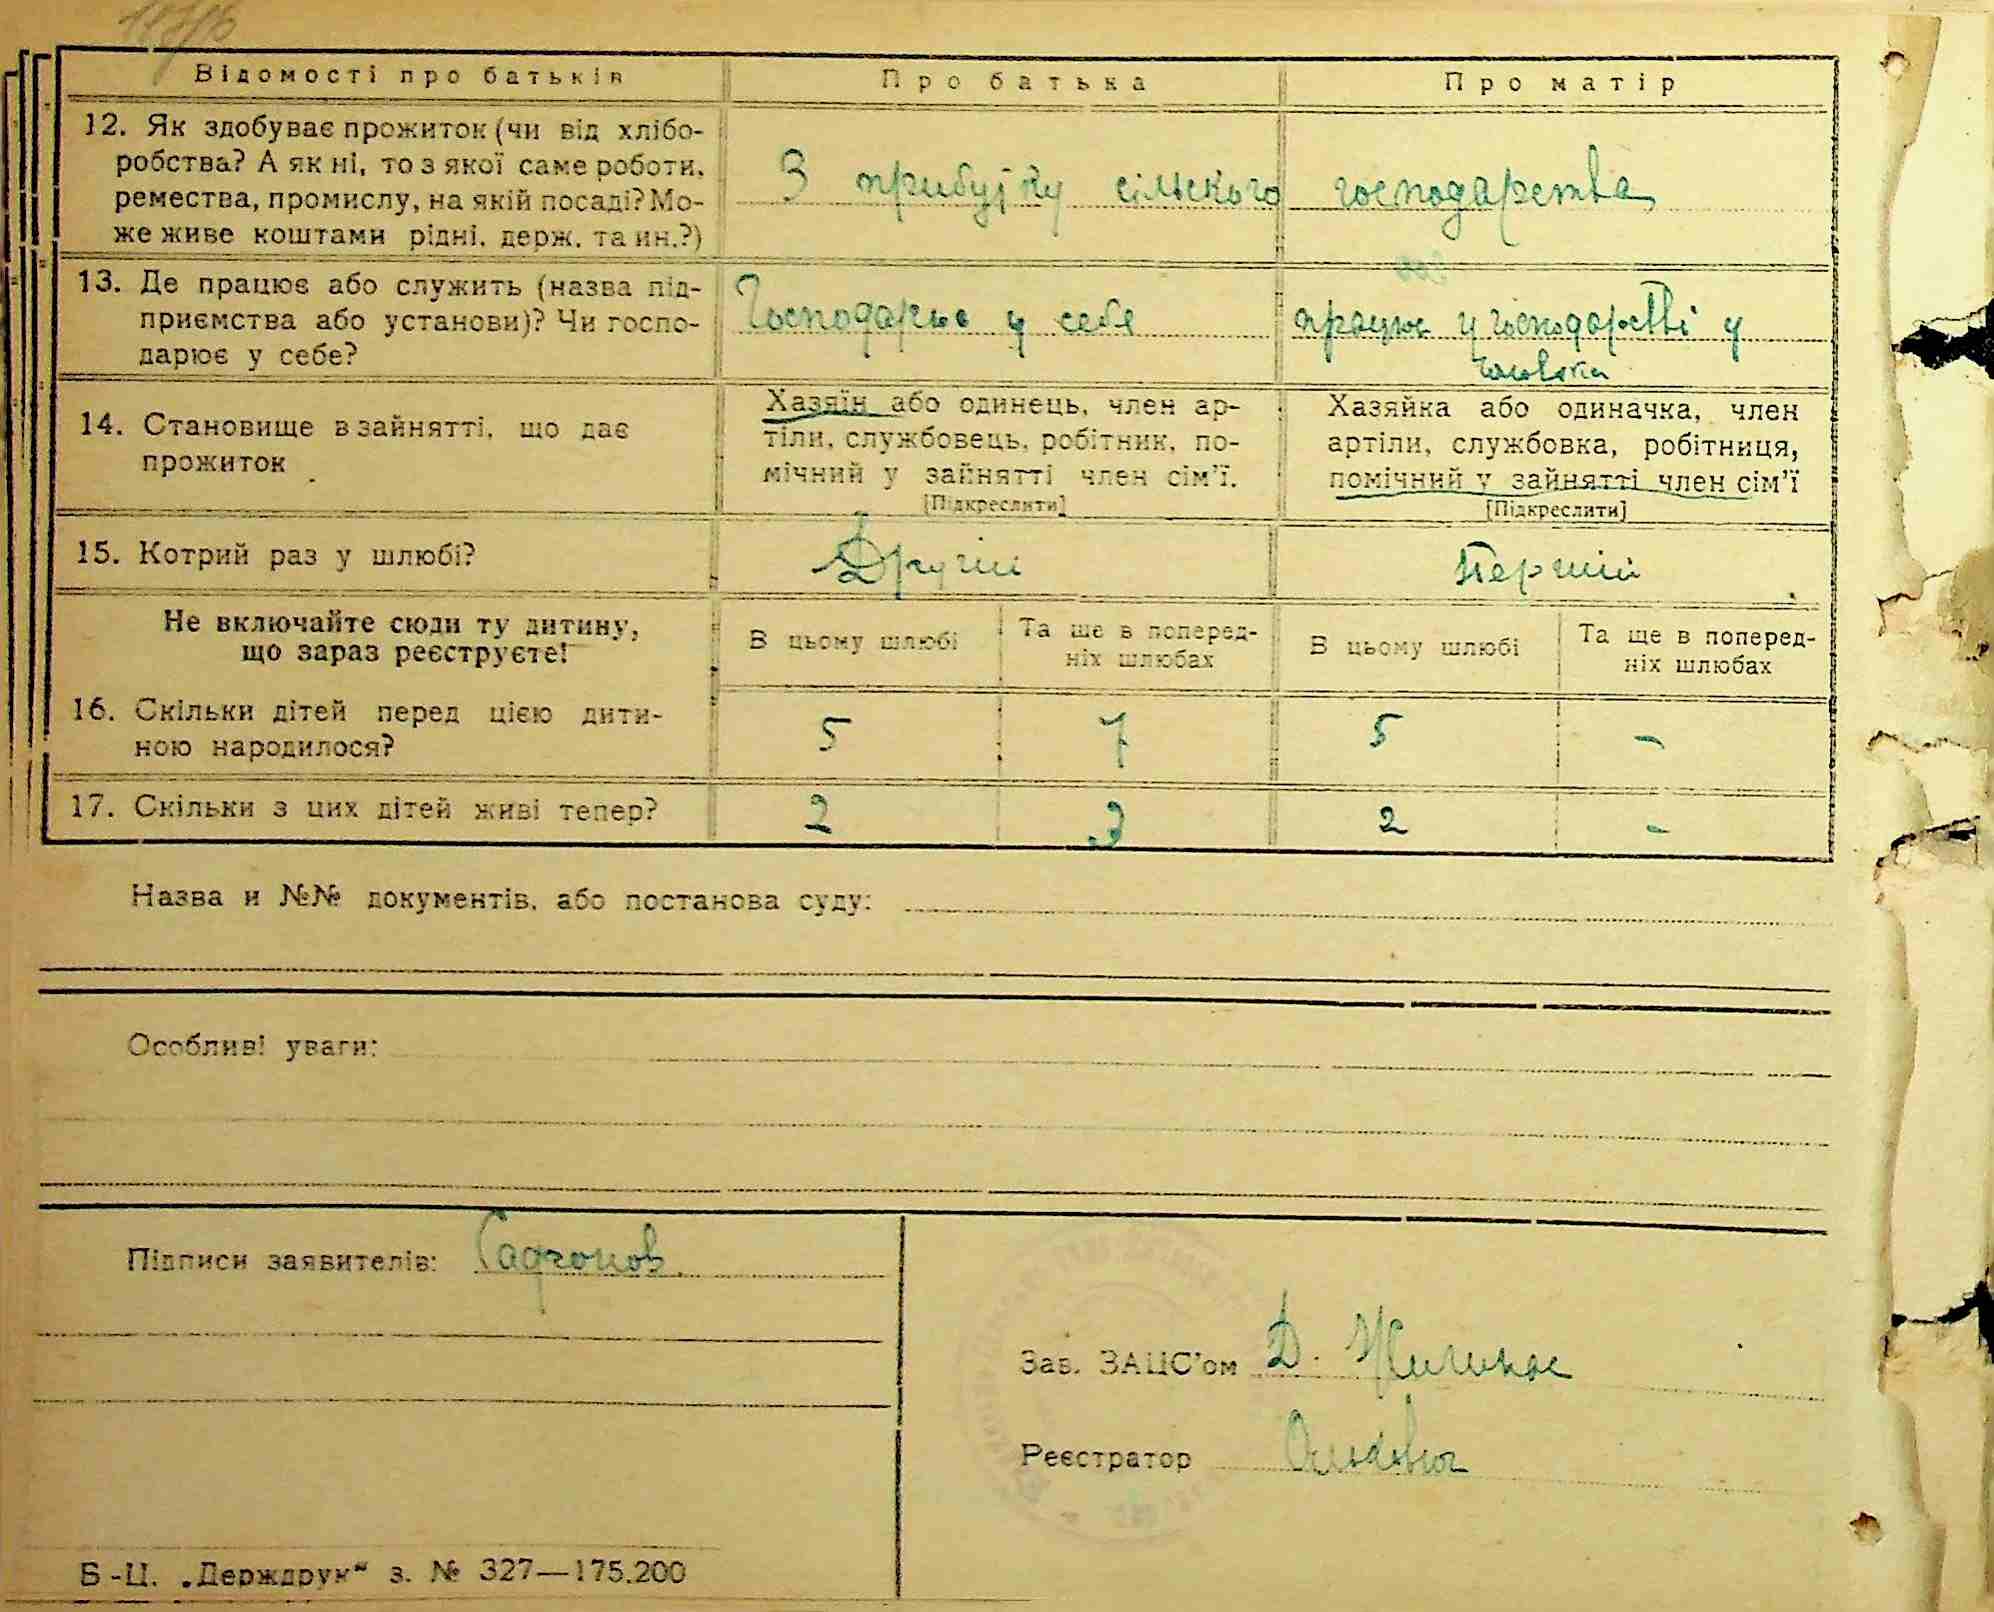 Відомості про батьків
Про батька
Про матір
12. Як здобуває прожиток (чи від хлібо-
робства? А як ні, то з якої саме роботи,
ремества, промислу, на якій посаді? Мо-
же живе коштами рідні, держ. та ин.?)
З прибутку сільского господарства
13. Де працює або служить (назва під-
приємства або установи)? Чи госпо-
дарює у себе?
Господарює у себе
працює у господарстві у
чоловіка
14. Становище в зайнятті, що дає
прожиток
Хазяїн або одинець, член ар-
тіли, службовець, робітник, по-
мічний у зайнятті член сім'ї.
[Підкреслити]
Хазяйка або одиначка, член
артіли, службовка, робітниця,
помічний у зайнятті член сім'ї
[Підкреслити]
15. Котрий раз у шлюбі?
Другий
Перший
Не включайте сюди ту дитину,
що зараз реєструєте!
В цьому шлюбі
Та ще в поперед-
ніх шлюбах
В цьому шлюбі
Та ще в поперед-
ніх шлюбах
16. Скільки дітей перед цією дити-
ною народилося?
5
7
5
-
17. Скільки з цих дітей живі тепер?
2
3
2
-
Назва и №№ документів, або постанова суду:
Особливі уваги:
Підписи заявителів: Сафронов
Зав. ЗАЦС'ом Д.
Реєстратор
Б-Ц. „Держдрук“ з. № 327—175.200